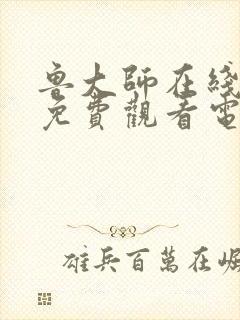 魯大師在綫
免費觀看電
雄兵百萬在崛